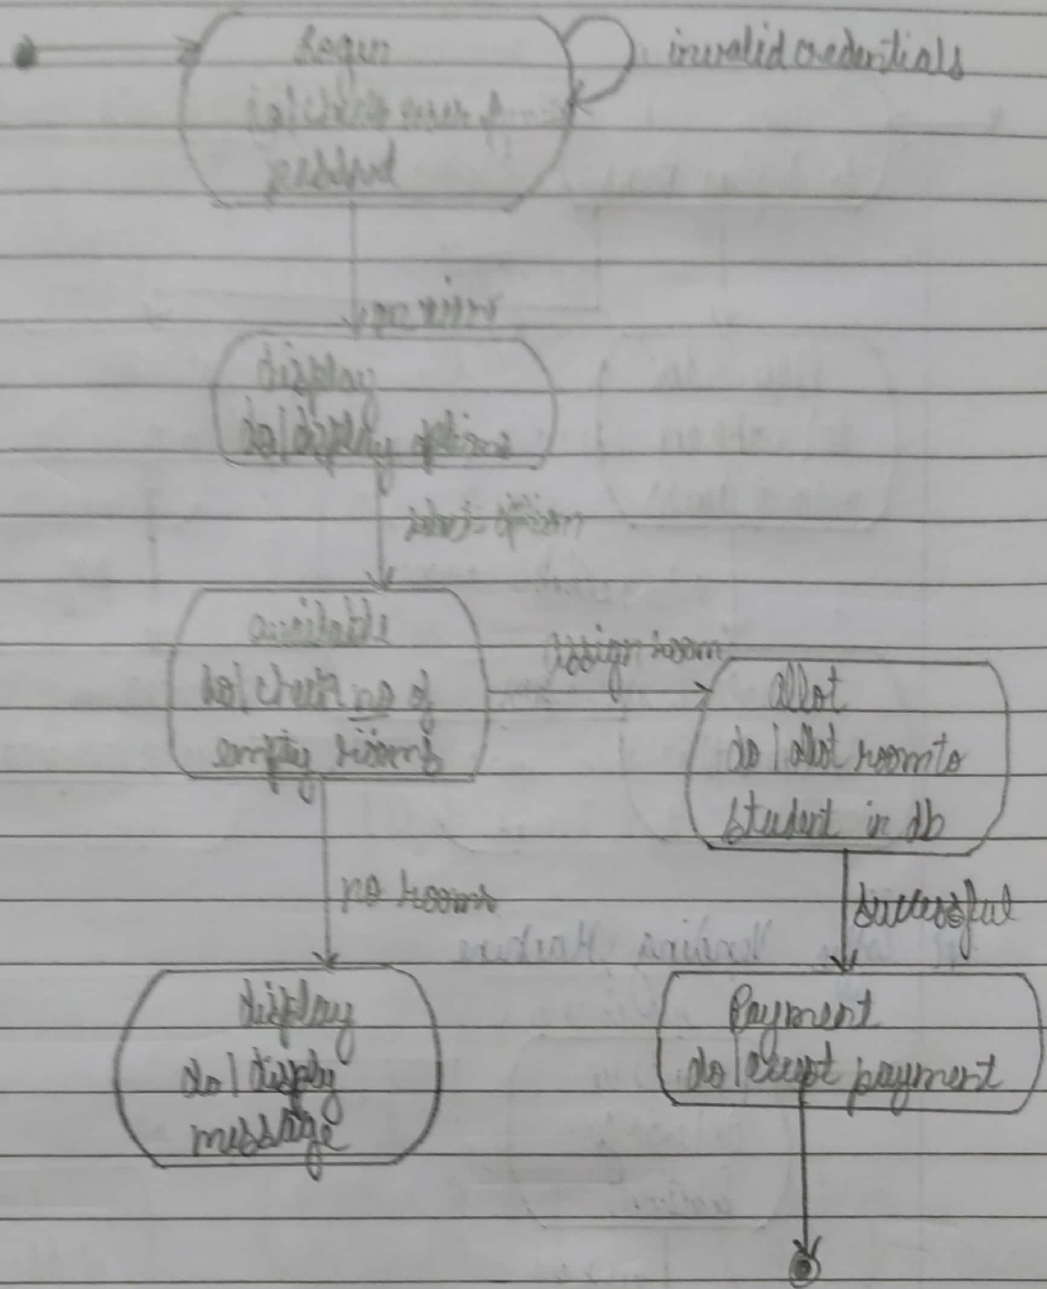 Login
invalid credentials
do/check user &
display
do/display options
select option
available
do/check no of
empty rooms
assign room
allot
do/allot room to
student in db
no rooms
successful
display
do/display
message
Payment
do/accept payment